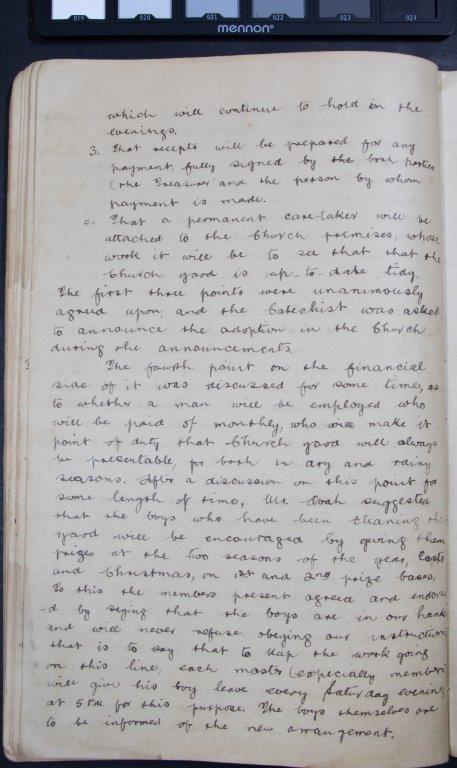 019 020 021 022 023 024
mennon
which will continue to hold in the
evenings.
3. That recepts will be prepared for any
payment, fully signed by the both parties
(the Treasurer and the person by whom
payment is made.
4. That a permanent care-taker will be
attached to the Church premises, whose
work it will be to see that that the
Church yard is up-to-date, tidy.
The first three points were unanimously
agreed upon, and the Catechist was asked
to announce the adoption in the Church
during the announcements.
The fourth point on the financial
side of it was discussed for some time, as
to whether a man will be employed who
will be paid of monthly, who will make it
point of duty that Church yard will always
be presentable, for both in dry and rainy
seasons. After a discussion on this point for
some length of time, Mr. suggested
that the boys who have been cleaning the
yard will be encouraged by giving them
prizes at the two seasons of the year, Easter
and Christmas, on 1st and 2nd prize bases.
To this the members present agreed and endorse
-d by saying that the boys are in our hands
and will never refuse obeying our instructions
that is to say that to keep the work going
on this line, each master (especially members
will give his boy leave every Saturday evening
at 5 P.M. for this purpose. The boys themselves are
to be informed of the new arrangement.